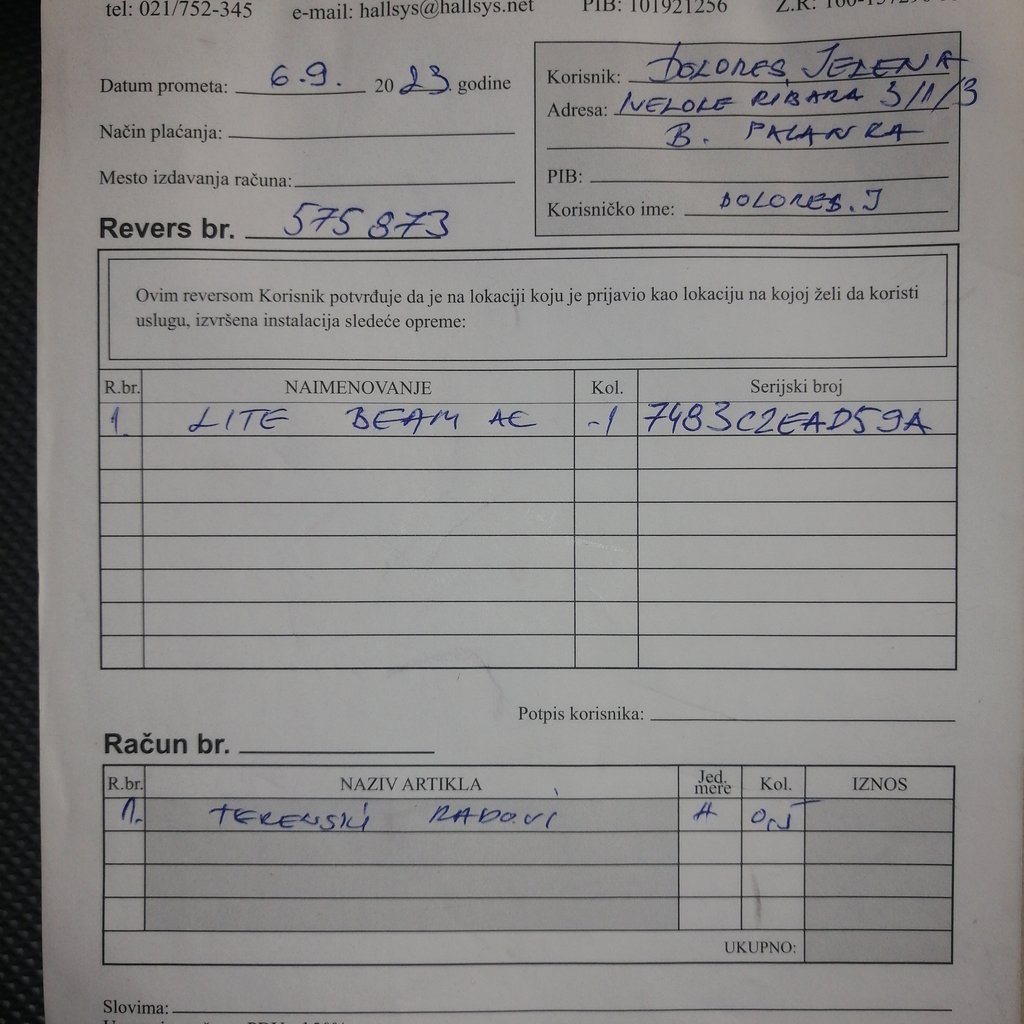 tel: 021/752-345 e-mail: hallsys@hallsys.net PIB: 101921256 Z.R:
Datum prometa: 6.9. 2023. godine
Korisnik: DOLORES JELENA
Način plaćanja:
Adresa: IVE LOLE RIBARA 3/1/3
B. PALANKA
Mesto izdavanja računa:
PIB:
Korisničko ime: DOLORES.J
Revers br. 575873
Ovim reversom Korisnik potvrđuje da je na lokaciji koju je prijavio kao lokaciju na kojoj želi da koristi
uslugu, izvršena instalacija sledeće opreme:
R.br. NAIMENOVANJE Kol. Serijski broj
1. LITE BEAM AC -1 7483C2EAD59A
Potpis korisnika:
Račun br.
R.br. NAZIV ARTIKLA Jed. mere Kol. IZNOS
1. TERENSKI RADOVI H
UKUPNO:
Slovima: